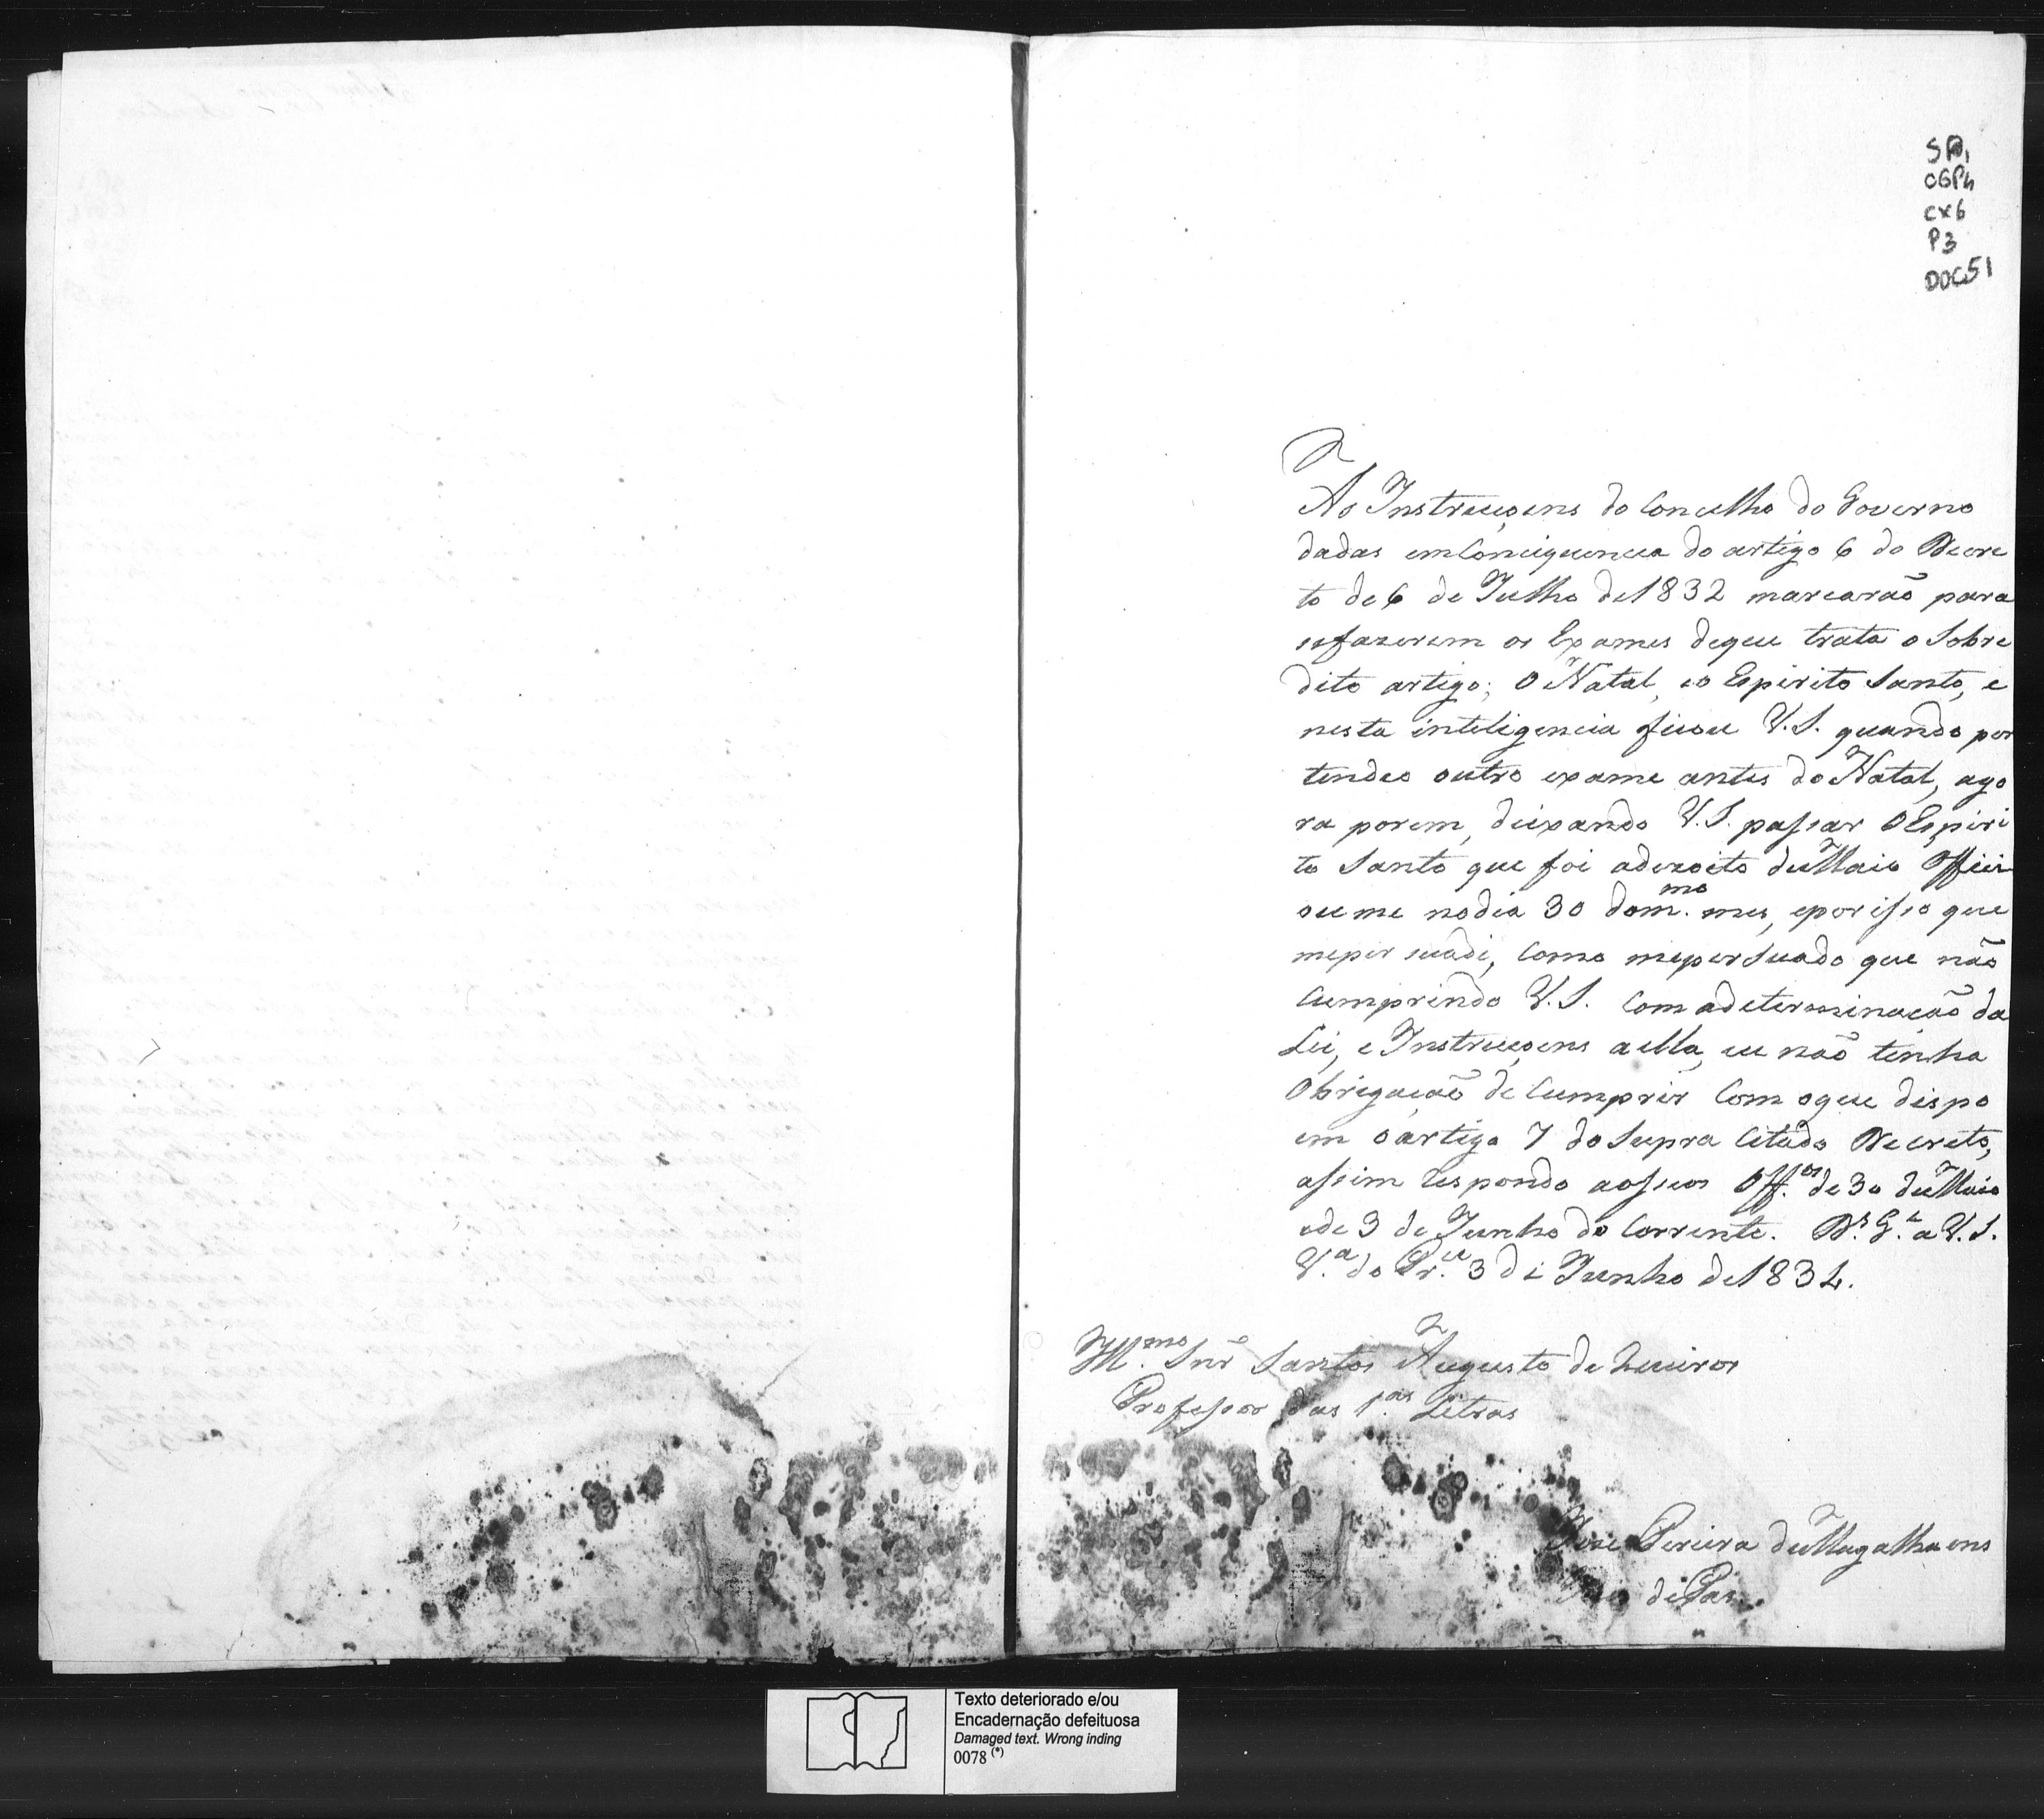 SP1
CGPh
CX6
P3
DOC51
As Instrucçoens do Concelho do Governo
dadas em Conciquencia do artigo 6 do Decre
to de 6 de Julho de 1832 marcarão para
se fazerem os Exames de que trata o Sobre
dito artigo; O Natal, e o Espirito Santo, e
nesta inteligencia ficou V.S. quando per
tendeo outro exame antes do Natal, ago
ra porem, deixando V.S. passar O Espiri
to Santo que foi a dezoito de Maio Offici
ou me no dia 30 do m.mo mes, e por isso que
me persuadi, Como me perSuado que não
Cumprindo V.S. Com a determinação da
Lei, e Instrucçoens a ella, eu não tinha
Obrigação de Cumprir Com o que dispo
em o artigo 7 do Supra Citado Decreto,
assim respondo aos seos Off.os de 30 de Maio
e de 3 de Junho do Corrente. D.s G.e a V.S.
V.a da Pr.a 3 de Junho de 1834.
Ill.mo Snr Santos Augusto de
Professor das 1.as Letras
Jose Pereira de Magalhaens
Juis de Pas
Texto deteriorado e/ou
Encadernação defeituosa
Damaged text. Wrong inding
0078 (*)